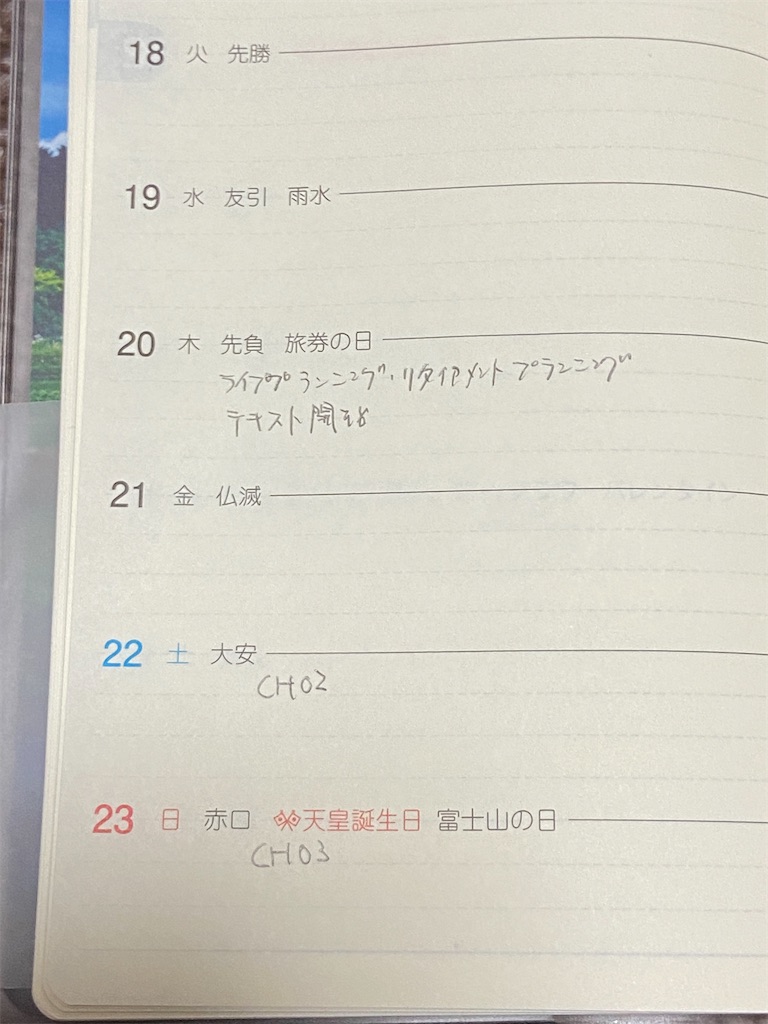 18 火 先勝
19 水 友引 雨水
20 木 先負 旅券の日
ライフプランニング・リタイアメントプランニング
テキスト開始
21 金 仏滅
22 土 大安
CH02
23 日 赤口 天皇誕生日 富士山の日
CH03